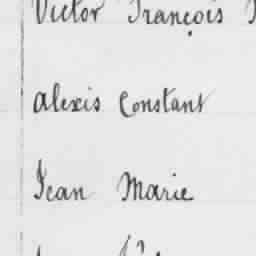 Victor François
Alexis Constant
Jean Marie